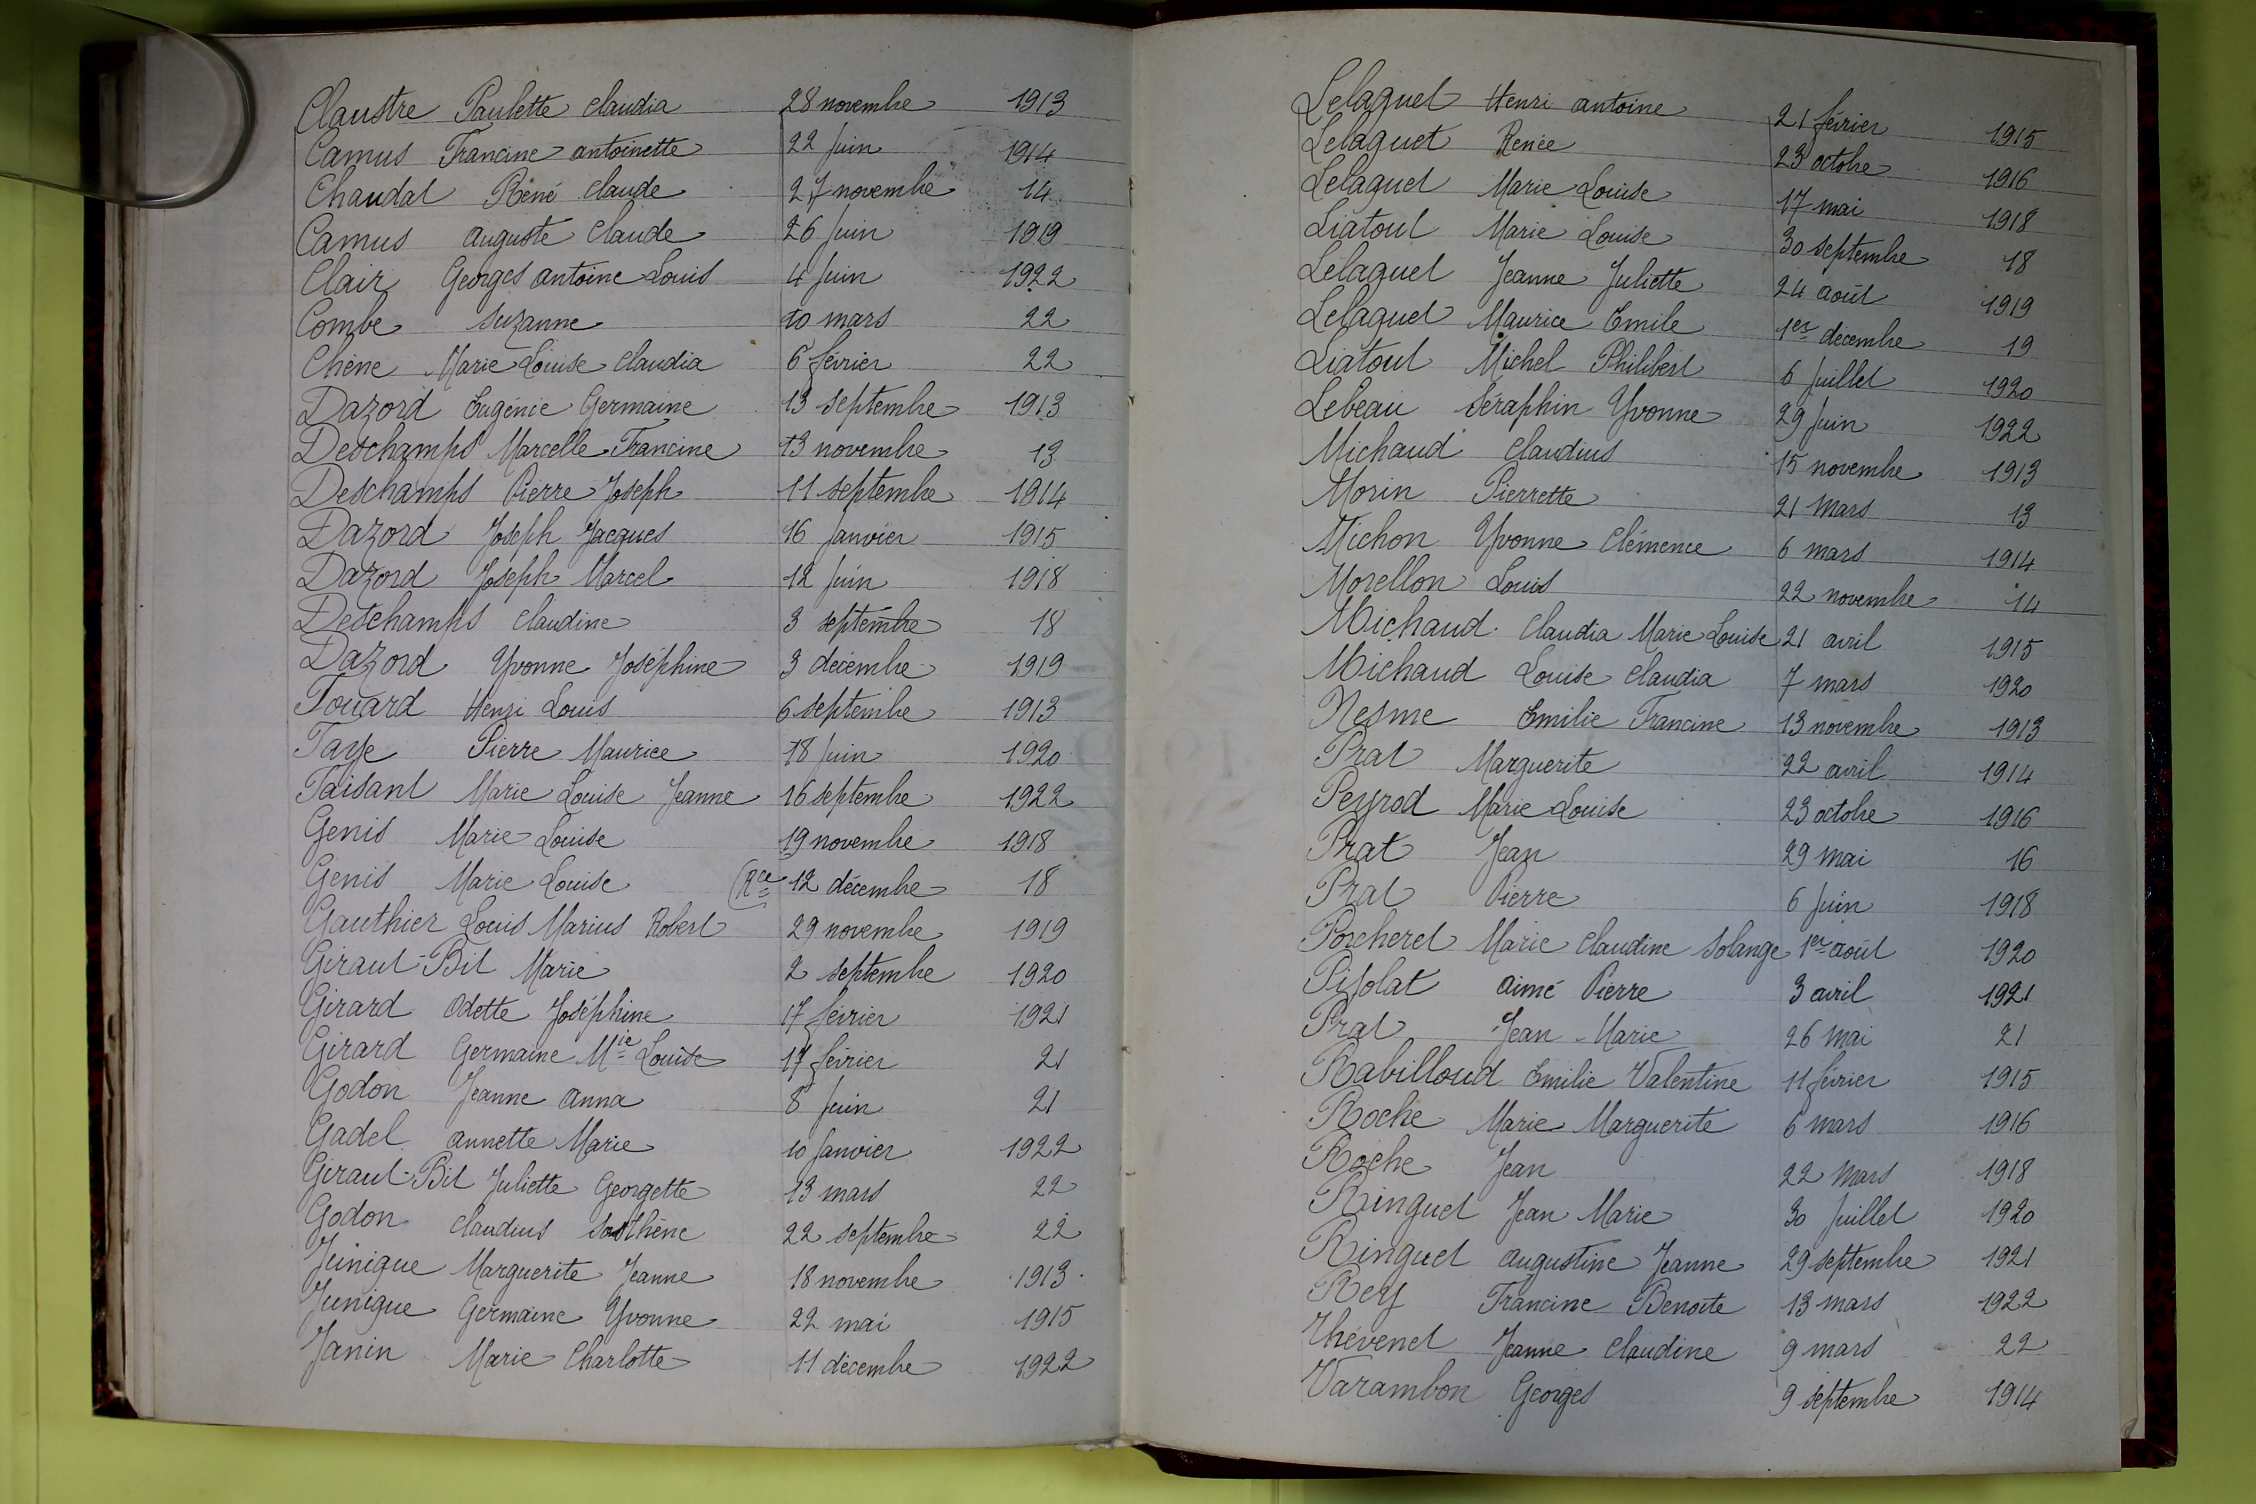 Claustre Paulette Claudia 28 novembre 1913
Camus Francine antoinette 22 Juin 1914
Chaudat Réné Claude 27 novembre 14
Camus auguste Claude 26 Juin 1919
Clair Georges antoine Louis 4 Juin 1922
Combe Suzanne 10 mars 22
Chêne Marie Louise Claudia 6 février 22
Dazord Eugénie Germaine 13 septembre 1913
Deschamps Marcelle Francine 13 novembre 13
Deschamps Pierre Joseph 11 septembre 1914
Dazord Joseph Jacques 16 Janvier 1915
Dazord Joseph Marcel 12 Juin 1918
Deschamps Claudine 3 septembre 18
Dazord Yvonne Joséphine 3 décembre 1919
Fouard Henri Louis 6 septembre 1913
Faye Pierre Maurice 18 Juin 1920
Faisant Marie Louise Jeanne 16 septembre 1922
Genis Marie Louise 19 novembre 1918
Genis Marie Louise (Rce 12 décembre 18
Gauthier Louis Marius Robert 29 novembre 1919
Giraut-Bit Marie 2 septembre 1920
Girard Odette Joséphine 17 février 1921
Girard Germaine Mie Louise 17 février 21
Godon Jeanne anna 8 Juin 21
Gadel annette Marie 10 Janvier 1922
Giraut-Bit Juliette Georgette 13 mars 22
Godon Claudius Sosthène 22 septembre 22
Junique Marguerite Jeanne 18 novembre 1913
Junique Germaine Yvonne 22 mai 1915
Janin Marie Charlotte 11 décembre 1922
Lelaquet Henri antoine 21 février 1915
Lelaquet Renée 23 octobre 1916
Lelaquet Marie Louise 17 mai 1918
Liatout Marie Louise 30 septembre 18
Lelaquet Jeanne Juliette 24 août 1919
Lelaquet Maurice Emile 1er décembre 19
Liatout Michel Philibert 6 Juillet 1920
Lebeau Séraphin Yvonne 29 Juin 1922
Michaud Claudius 15 novembre 1913
Morin Pierrette 21 Mars 13
Michon Yvonne Clémence 6 mars 1914
Morellon Louis 22 novembre 14
Michaud Claudia Marie Louise 21 avril 1915
Michaud Louise Claudia 7 mars 1920
Nesme Emilie Francine 13 novembre 1913
Prat Marguerite 22 avril 1914
Peyrod Marie Louise 23 octobre 1916
Prat Jean 29 Mai 16
Prat Pierre 6 Juin 1918
Porcheret Marie Claudine Solange 1er août 1920
Pisolat aimé Pierre 3 avril 1921
Prat Jean Marie 26 Mai 21
Rabilloud Emilie Valentine 11 février 1915
Roche Marie Marguerite 6 mars 1916
Roche Jean 22 Mars 1918
Ringuet Jean Marie 30 Juillet 1920
Ringuet augustine Jeanne 29 septembre 1921
Rey Francine Benoite 13 mars 1922
Thévenet Jeanne Claudine 9 mars 22
Varambon Georges 9 septembre 1914